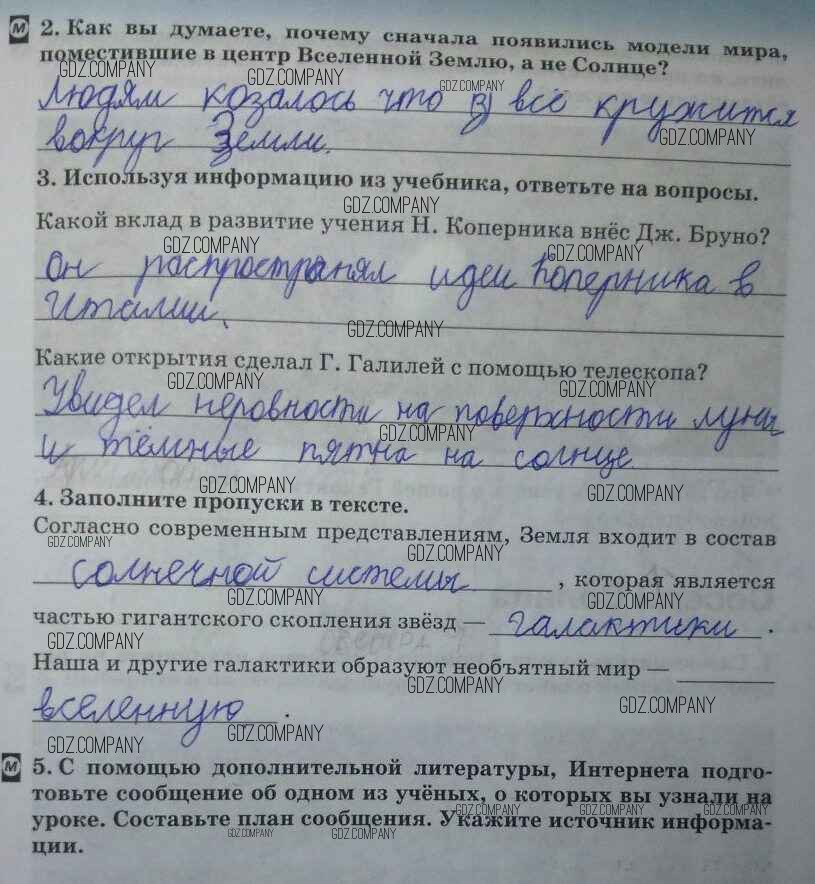 2. Как вы думаете, почему сначала появились модели мира,
поместившие в центр Вселенной Землю, а не Солнце?
GDZ.COMPANY GDZ.COMPANY GDZ.COMPANY
Людям козалось что всё кружится
GDZ.COMPANY
вокруг Земли.
3. Используя информацию из учебника, ответьте на вопросы.
GDZ.COMPANY
Какой вклад в развитие учения Н. Коперника внёс Дж. Бруно?
GDZ.COMPANY GDZ.COMPANY
Он распространял идеи Коперника в
Италии.
GDZ.COMPANY
Какие открытия сделал Г. Галилей с помощью телескопа?
GDZ.COMPANY GDZ.COMPANY
Увидел неровности на поверхности луны
GDZ.COMPANY
и тёмные пятна на солнце
GDZ.COMPANY GDZ.COMPANY
4. Заполните пропуски в тексте.
Согласно современным представлениям, Земля входит в состав
GDZ.COMPANY GDZ.COMPANY
солнечной системы , которая является
GDZ.COMPANY GDZ.COMPANY
частью гигантского скопления звёзд — галактики .
GDZ.COMPANY
Наша и другие галактики образуют необъятный мир —
GDZ.COMPANY GDZ.COMPANY
вселенную .
GDZ.COMPANY GDZ.COMPANY
М 5. С помощью дополнительной литературы, Интернета подго-
товьте сообщение об одном из учёных, о которых вы узнали на
GDZ.COMPANY GDZ.COMPANY
уроке. Составьте план сообщения. Укажите источник информа-
GDZ.COMPANY GDZ.COMPANY
ции.